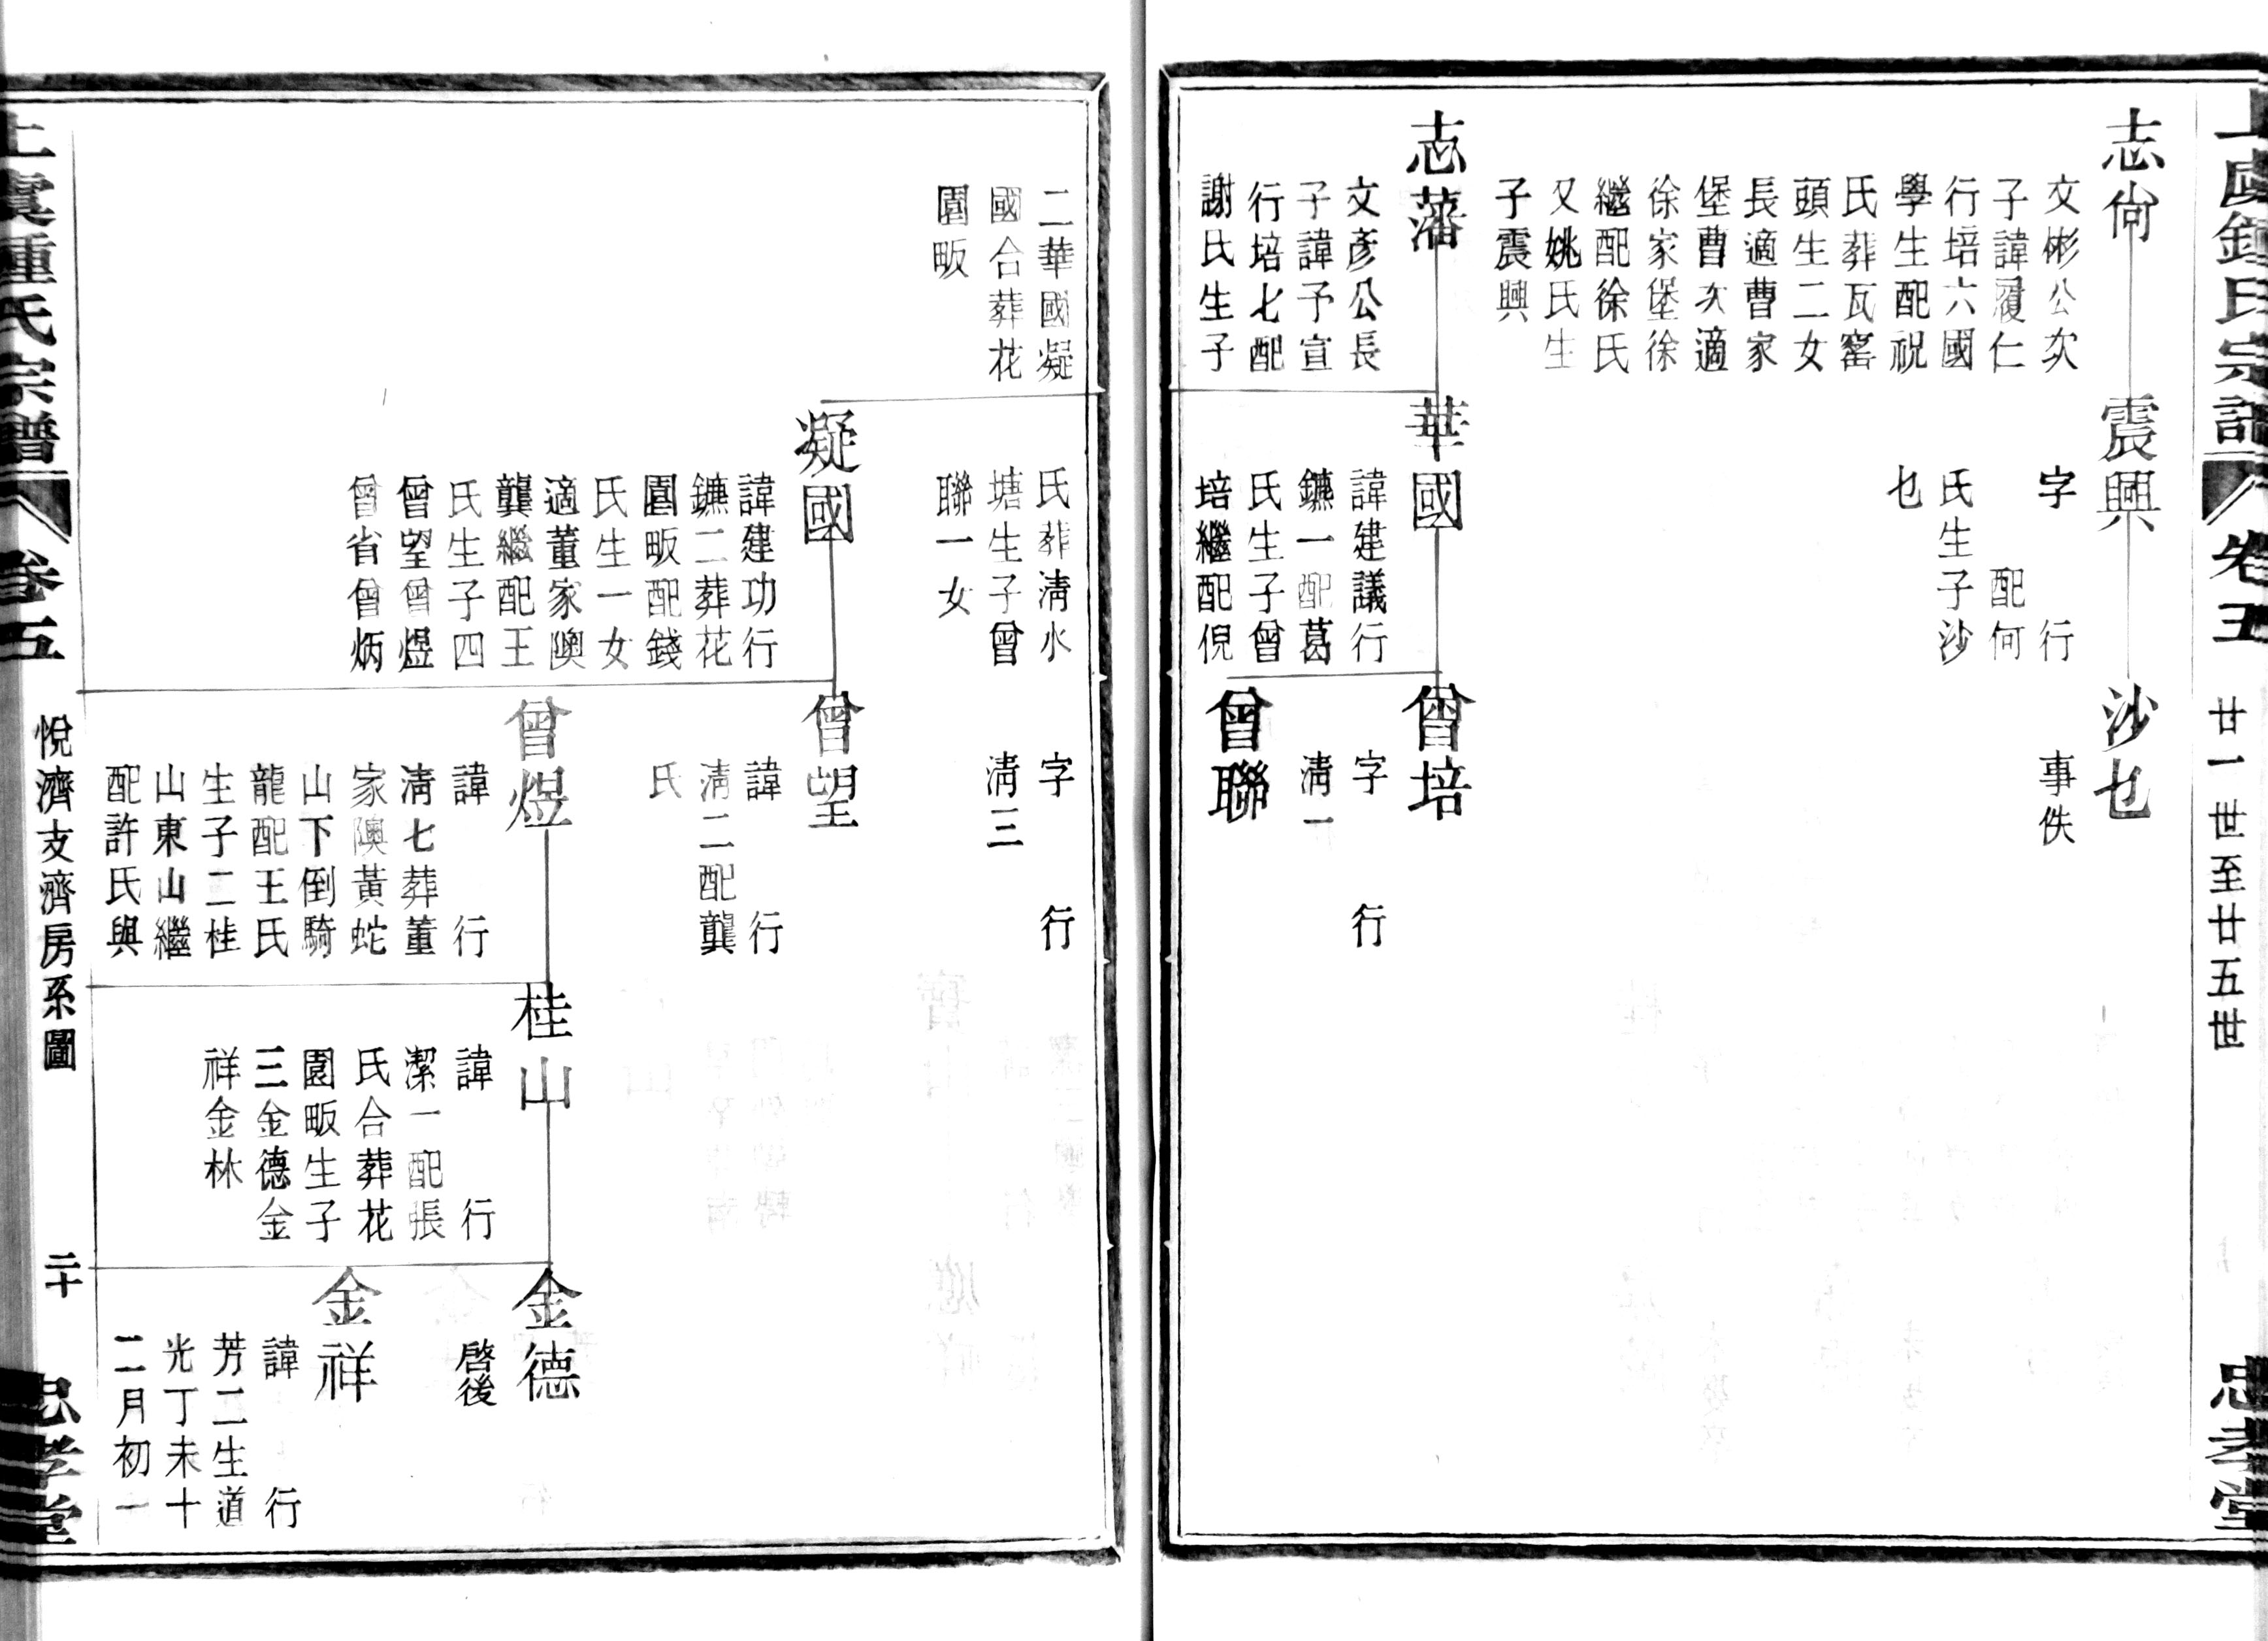 上虞鍾氏宗譜
卷五
廿一世至廿五世
忠孝堂
志尙
文彬公次
子諱履仁
行培六國
學生配祝
氏葬瓦窰
頭生二女
長適曹家
堡曹次適
徐家堡徐
繼配徐氏
又姚氏生
子震興
震興
字　行
配何
氏生子沙
乜
沙乜
事佚
志藩
文彥公長
子諱予宣
行培七配
謝氏生子
二華國凝
國合葬花
園畈
華國
諱建議行
鑣一配葛
氏生子曾
培繼配倪
氏葬淸水
塘生子曾
聯一女
曾培
字　行
淸一
曾聯
字　行
淸三
凝國
諱建功行
鑣二葬花
園畈配錢
氏生一女
適董家隩
龔繼配王
氏生子四
曾望曾煜
曾省曾炳
曾望
諱　行
淸二配龔
氏
曾煜
諱　行
淸七葬董
家隩黃蛇
山下倒騎
龍配王氏
生子二桂
山東山繼
配許氏與
桂山
諱　行
潔一配張
氏合葬花
園畈生子
三金德金
祥金林
金德
啓後
金祥
諱　行
芳二生道
光丁未十
二月初一
上虞鍾氏宗譜
卷五
悅濟支濟房系圖
二十
忠孝堂